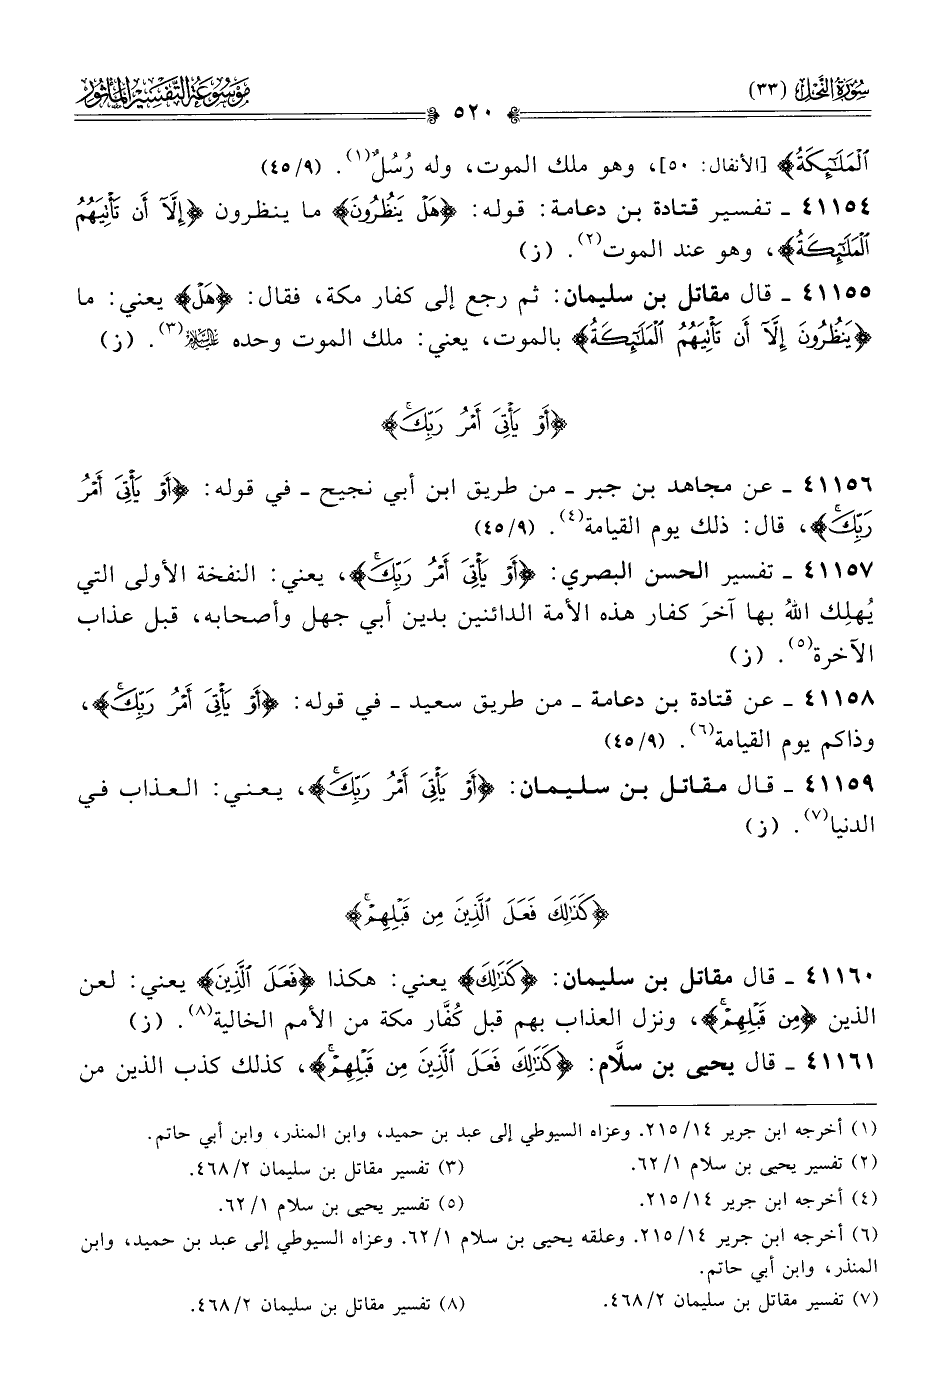 سُورَةُ النَّحْل (٣٣)
موسوعة التفسير المأثور
٥٢٠
ٱلْمَلَٰٓئِكَةُ﴾ [الأنفال: ٥٠]، وهو ملك الموت، وله رُسُلٌ(١). (٩/ ٤٥)
٤١١٥٤ ـ تفسير قتادة بن دعامة: قوله: ﴿هَلْ يَنظُرُونَ﴾ ما ينظرون ﴿إِلَّآ أَن تَأْتِيَهُمُ
ٱلْمَلَٰٓئِكَةُ﴾، وهو عند الموت(٢). (ز)
٤١١٥٥ ـ قال مقاتل بن سليمان: ثم رجع إلى كفار مكة، فقال: ﴿هَلْ﴾ يعني: ما
﴿يَنظُرُونَ إِلَّآ أَن تَأْتِيَهُمُ ٱلْمَلَٰٓئِكَةُ﴾ بالموت، يعني: ملك الموت وحده عليه السلام(٣). (ز)
﴿أَوْ يَأْتِيَ أَمْرُ رَبِّكَۚ﴾
٤١١٥٦ ـ عن مجاهد بن جبر ـ من طريق ابن أبي نجيح ـ في قوله: ﴿أَوْ يَأْتِيَ أَمْرُ
رَبِّكَۚ﴾، قال: ذلك يوم القيامة(٤). (٩/ ٤٥)
٤١١٥٧ ـ تفسير الحسن البصري: ﴿أَوْ يَأْتِيَ أَمْرُ رَبِّكَۚ﴾، يعني: النفخة الأولى التي
يُهلِك اللهُ بها آخرَ كفار هذه الأمة الدائنين بدين أبي جهل وأصحابه، قبل عذاب
الآخرة(٥). (ز)
٤١١٥٨ ـ عن قتادة بن دعامة ـ من طريق سعيد ـ في قوله: ﴿أَوْ يَأْتِيَ أَمْرُ رَبِّكَۚ﴾،
وذاكم يوم القيامة(٦). (٩/ ٤٥)
٤١١٥٩ ـ قال مقاتل بن سليمان: ﴿أَوْ يَأْتِيَ أَمْرُ رَبِّكَۚ﴾، يعني: العذاب في
الدنيا(٧). (ز)
﴿كَذَٰلِكَ فَعَلَ ٱلَّذِينَ مِن قَبْلِهِمْۚ﴾
٤١١٦٠ ـ قال مقاتل بن سليمان: ﴿كَذَٰلِكَ﴾ يعني: هكذا ﴿فَعَلَ ٱلَّذِينَ﴾ يعني: لعن
الذين ﴿مِن قَبْلِهِمْۚ﴾، ونزل العذاب بهم قبل كُفَّار مكة من الأمم الخالية(٨). (ز)
٤١١٦١ ـ قال يحيى بن سلَّام: ﴿كَذَٰلِكَ فَعَلَ ٱلَّذِينَ مِن قَبْلِهِمْۚ﴾، كذلك كذب الذين من
(١) أخرجه ابن جرير ١٤/ ٢١٥. وعزاه السيوطي إلى عبد بن حميد، وابن المنذر، وابن أبي حاتم.
(٢) تفسير يحيى بن سلام ١/ ٦٢. (٣) تفسير مقاتل بن سليمان ٢/ ٤٦٨.
(٤) أخرجه ابن جرير ١٤/ ٢١٥. (٥) تفسير يحيى بن سلام ١/ ٦٢.
(٦) أخرجه ابن جرير ١٤/ ٢١٥. وعلقه يحيى بن سلام ١/ ٦٢. وعزاه السيوطي إلى عبد بن حميد، وابن
المنذر، وابن أبي حاتم.
(٧) تفسير مقاتل بن سليمان ٢/ ٤٦٨. (٨) تفسير مقاتل بن سليمان ٢/ ٤٦٨.